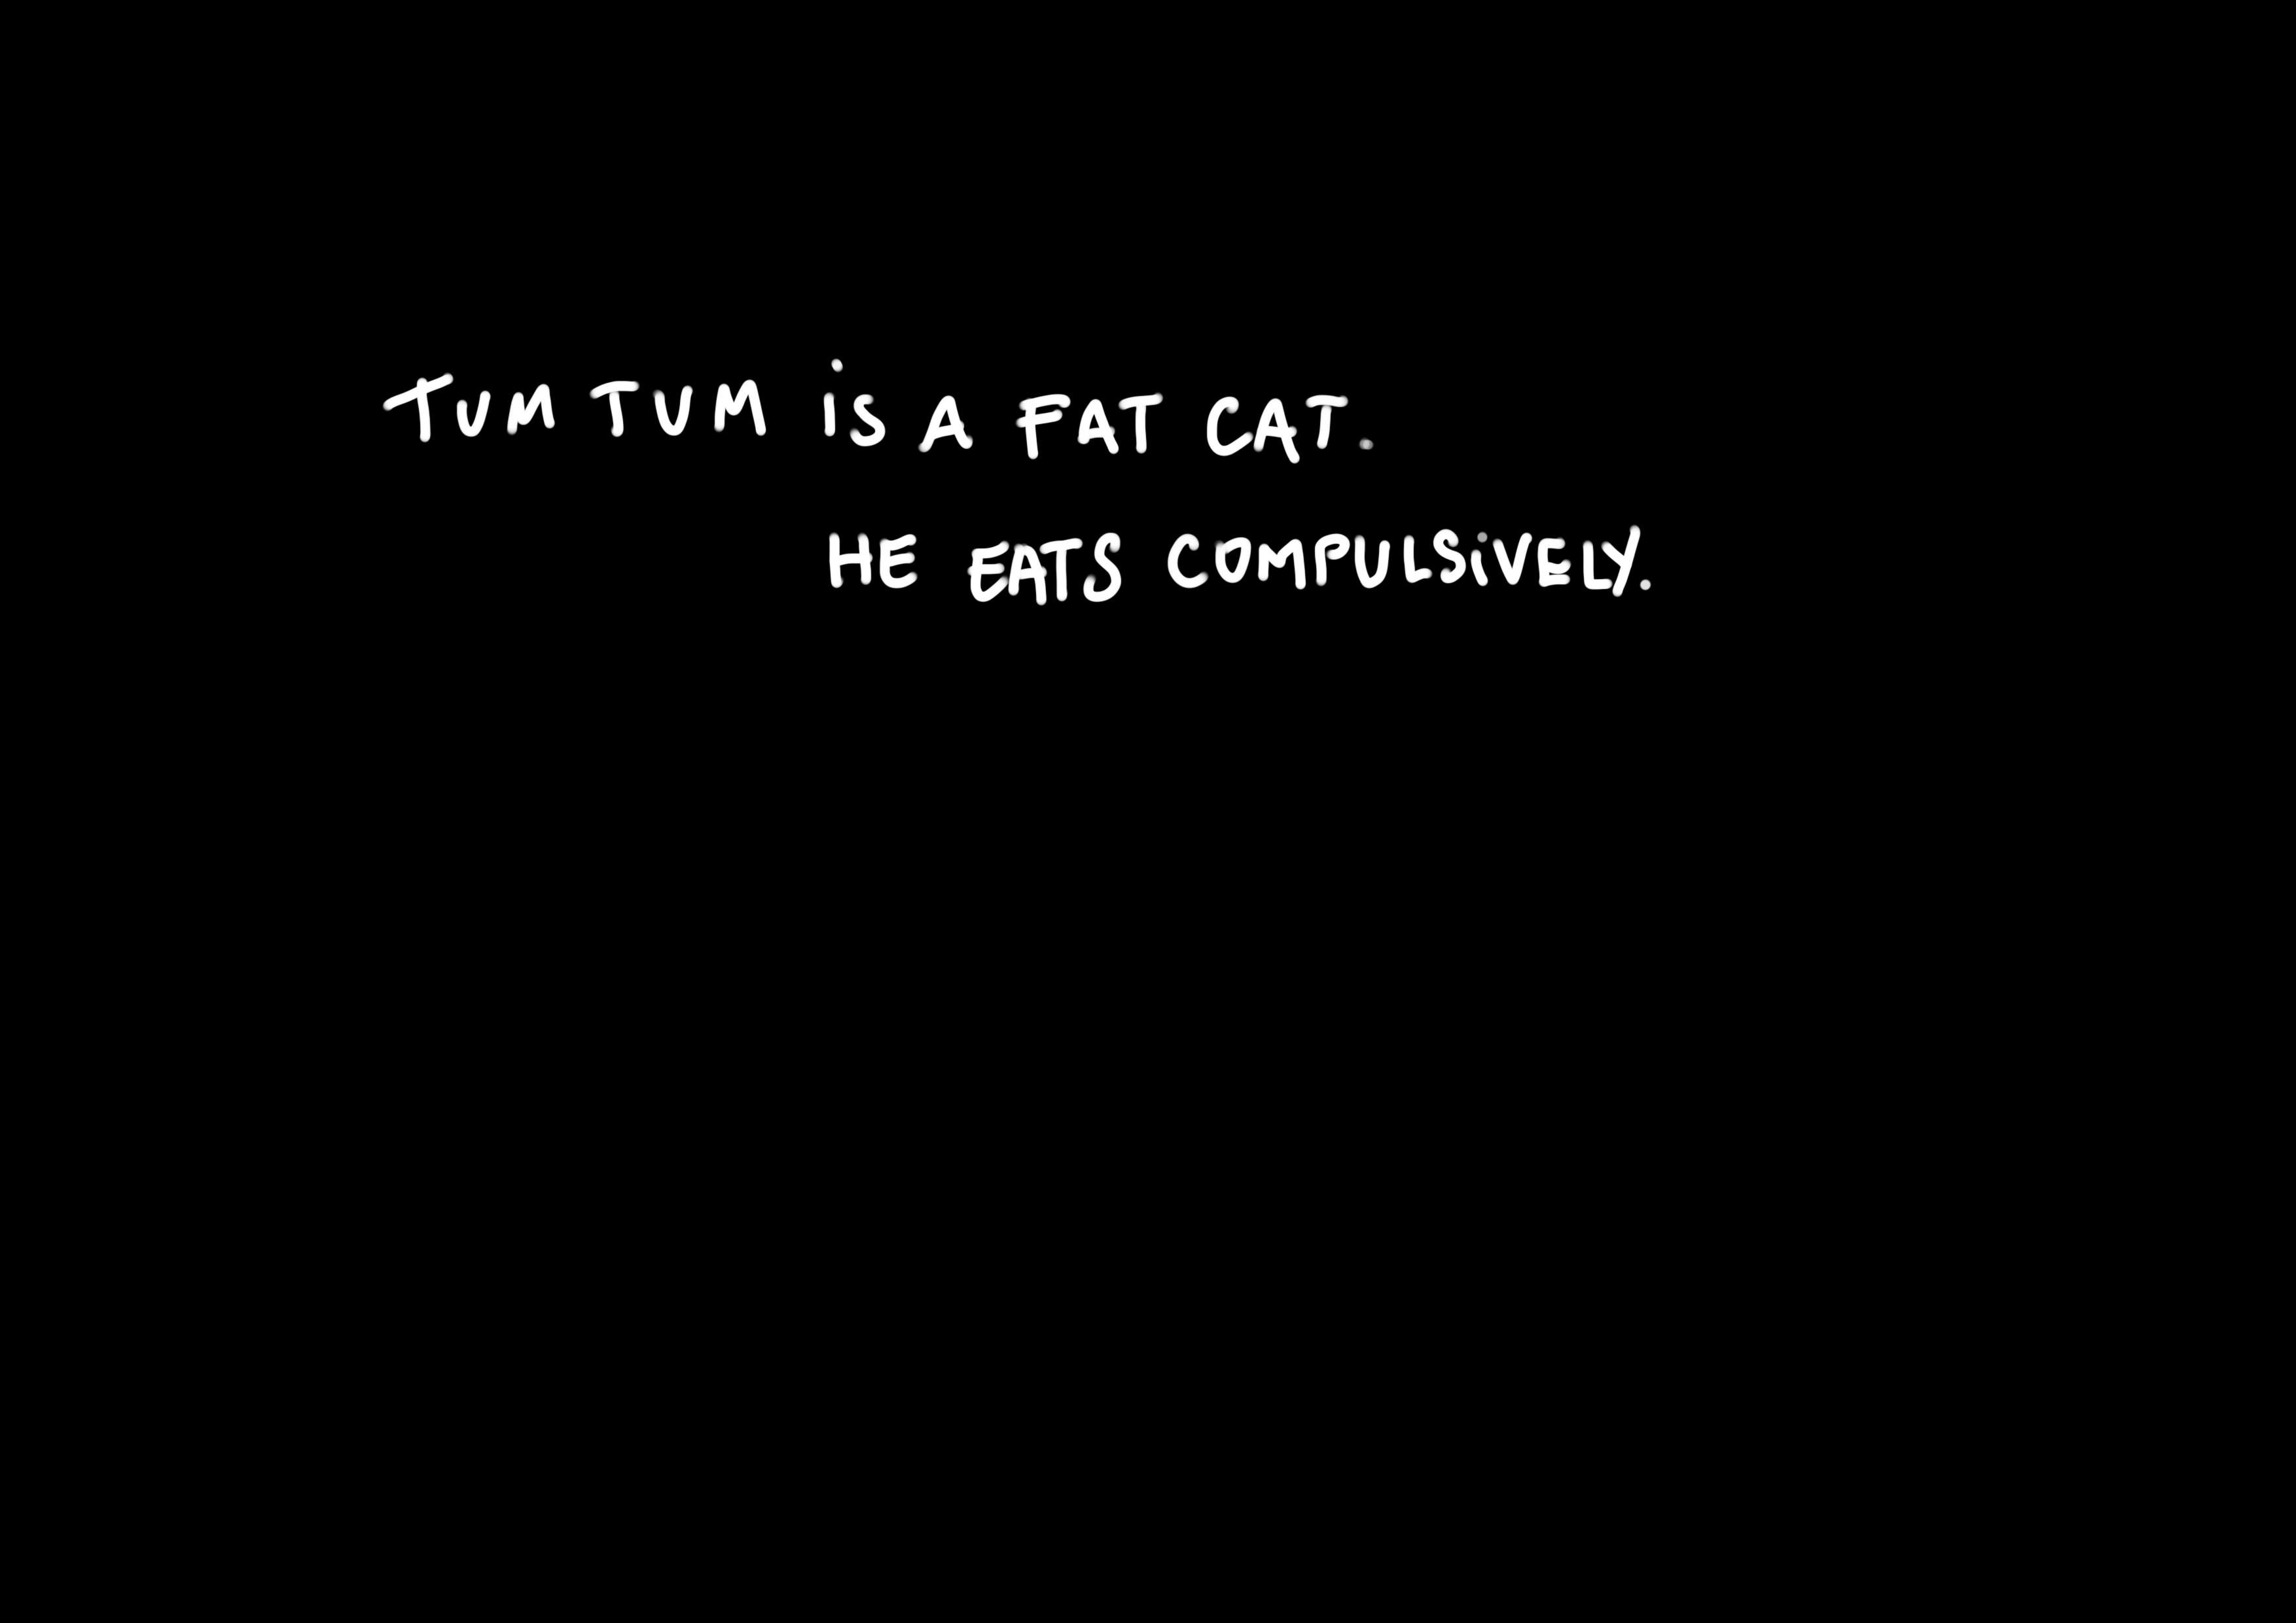 TUM TUM iS A FAT CAT.
HE EATS COMPULSiVELY.